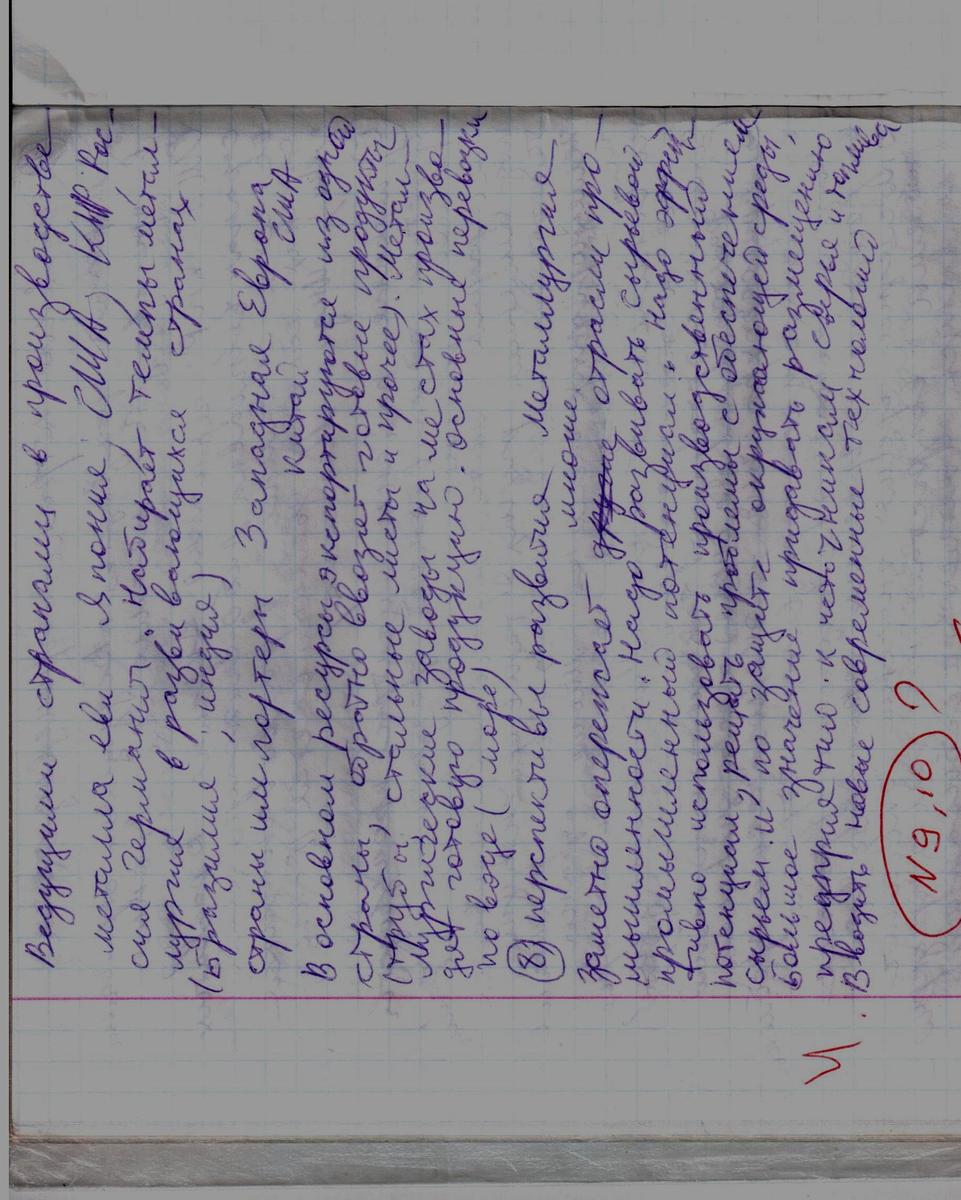 Ведущими странами в производстве
металла яви Япония, США, КНР. Рос-
сия Германия. Набирает темпы метал-
лургия в развивающихся странах
(Бразилия, индия)
страны импортеры Западная Европа
Китай США
В основном ресурсы экспортируются из одной
страны, обратно ввозят готовые продукты
(трубы, стальные листы и прочее). Метал-
лургические заводы на местах произво-
дят готовую продукцию. основные перевозки
по воде (море)
(8) перспективы развития металлургия
многие
заметно опережает отрасли про-
мышленности. Надо развивать сырьевой
промышленный потенциал. надо эффек
тивно использовать производственный
потенциал, решить проблемы с обеспечением
сырьем и по защите окружающей среды,
большое значение придавать размещению
предприятию к источникам сырья и топлива
Вводить новые современные технологий
N9,10?
4.